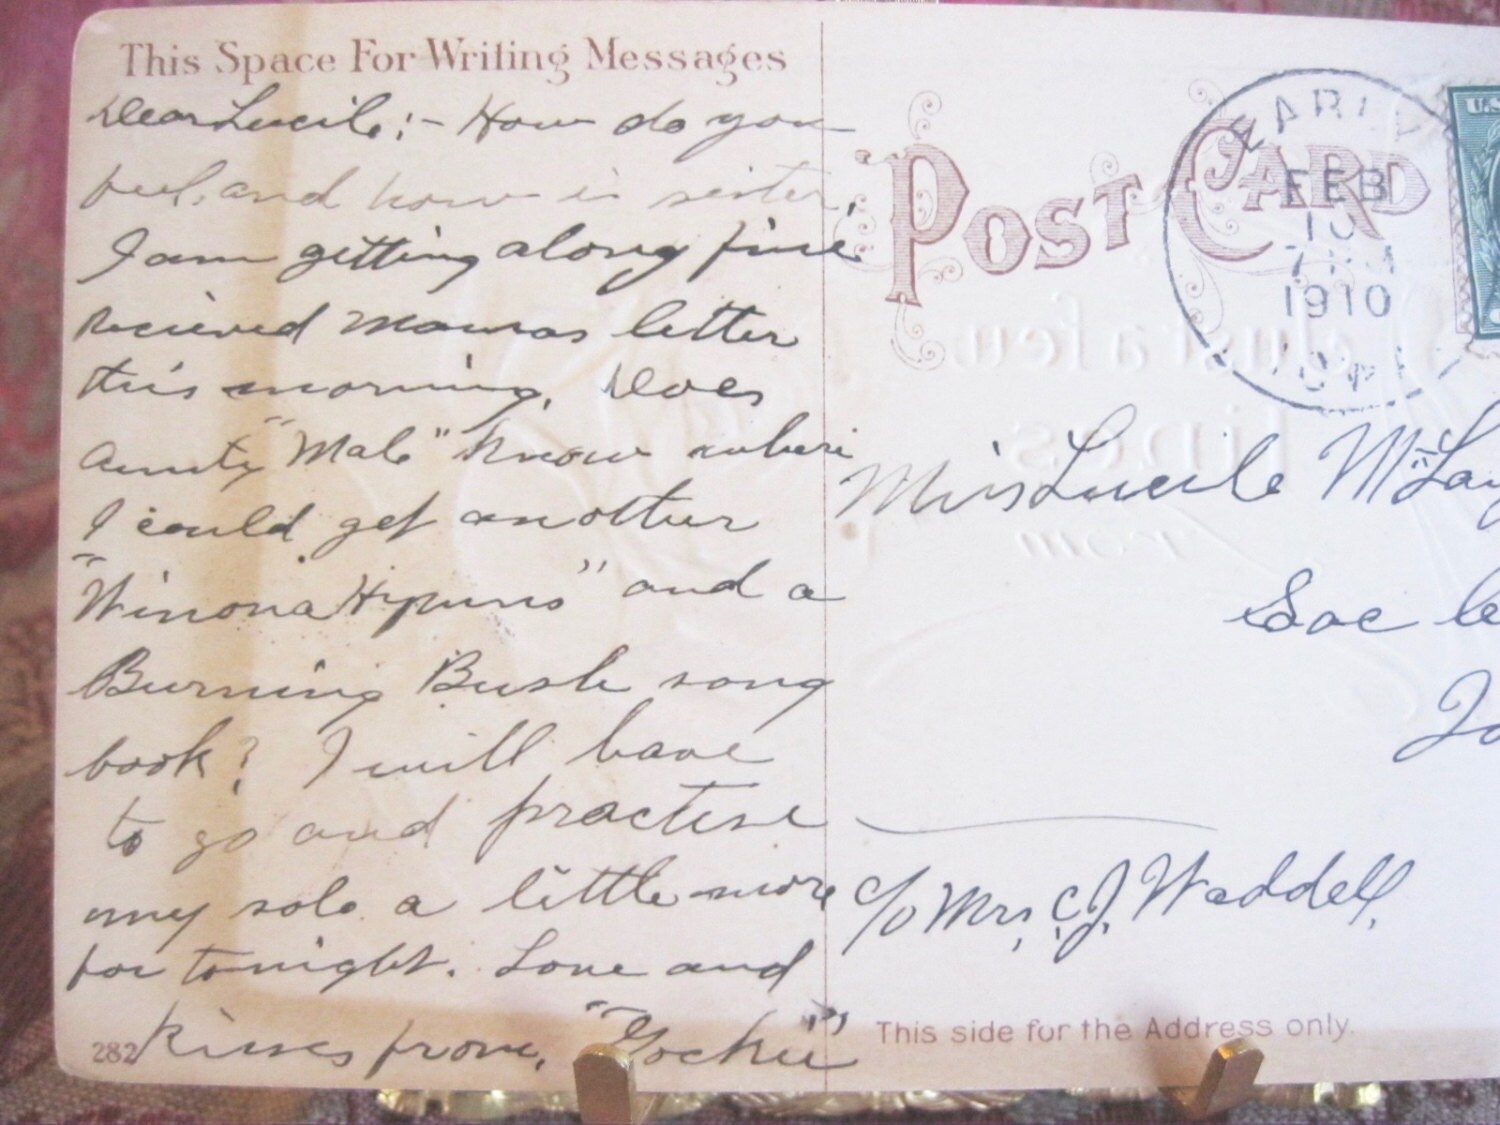 This Space For Writing Messages
Dear Lucile:- How do you
feel, and how is sister.
I am getting along fine
Recieved mamas letter
this morning. Does
Aunty "Mab" know where
I could get another
"Winona Hymns" and a
Burning Bush song
book? I will have
to go and practise
my solo a little more
for tonight. Love and
Kisses from,
282
POST CARD
EARL
FEB
1910
U.S.
Just a few
lines
from
Miss Lucile Mc
Sac
c/o Mrs. C.J. Waddell,
This side for the Address only.